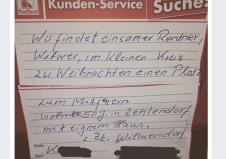 Kunden-Service
Suche:
Wo findet einsamer Rentner,
Witwer, im kleinen Kreis
zu Weihnachten einen Platz
zum Mitfeiern
wohnhaft in Zehlendorf
mit eignem Haus.
z. Zt. Wilmersdorf
K